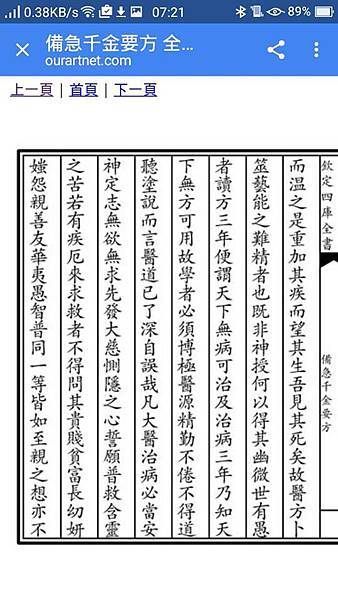 0.38KB/s 07:21 89%
備急千金要方 全...
ourartnet.com
上一頁 | 首頁 | 下一頁
欽定四庫全書
備急千金要方
而温之是重加其疾而望其生吾見其死矣故醫方卜
筮藝能之難精者也既非神授何以得其幽微世有愚
者讀方三年便謂天下無病可治及治病三年乃知天
下無方可用故學者必須博極醫源精勤不倦不得道
聽塗說而言醫道已了深自誤哉凡大醫治病必當安
神定志無欲無求先發大慈惻隱之心誓願普救含靈
之苦若有疾厄來求救者不得問其貴賤貧富長幼妍
媸怨親善友華夷愚智普同一等皆如至親之想亦不